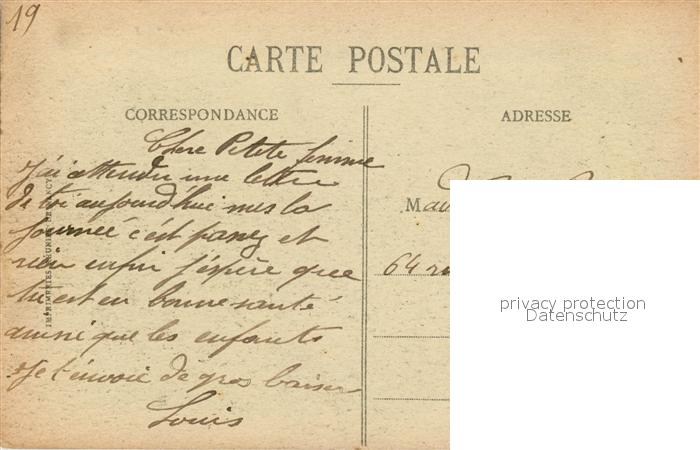 19
CARTE POSTALE
CORRESPONDANCE
Chere Petite femme
J'ai attendu une lettre
de toi aujourd'hui mes la
journeé c'est passez et
rien enfin j'espère que
tu est en bonne santé
ainsi que les enfants
Je t'envoie de gros baiser
Louis
IMPRIMERIES RÉUNIES DE NANCY
ADRESSE
M
64
privacy protection
Datenschutz